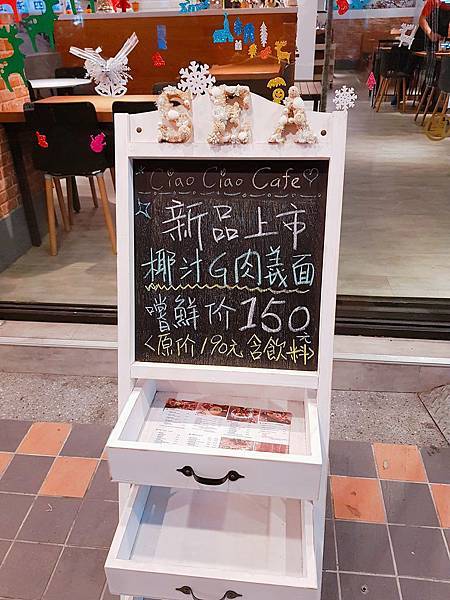 BEA
Ciao Ciao Cafe
新品上市
椰汁G肉義面
嚐鮮价150元
<原价190元含飲料>